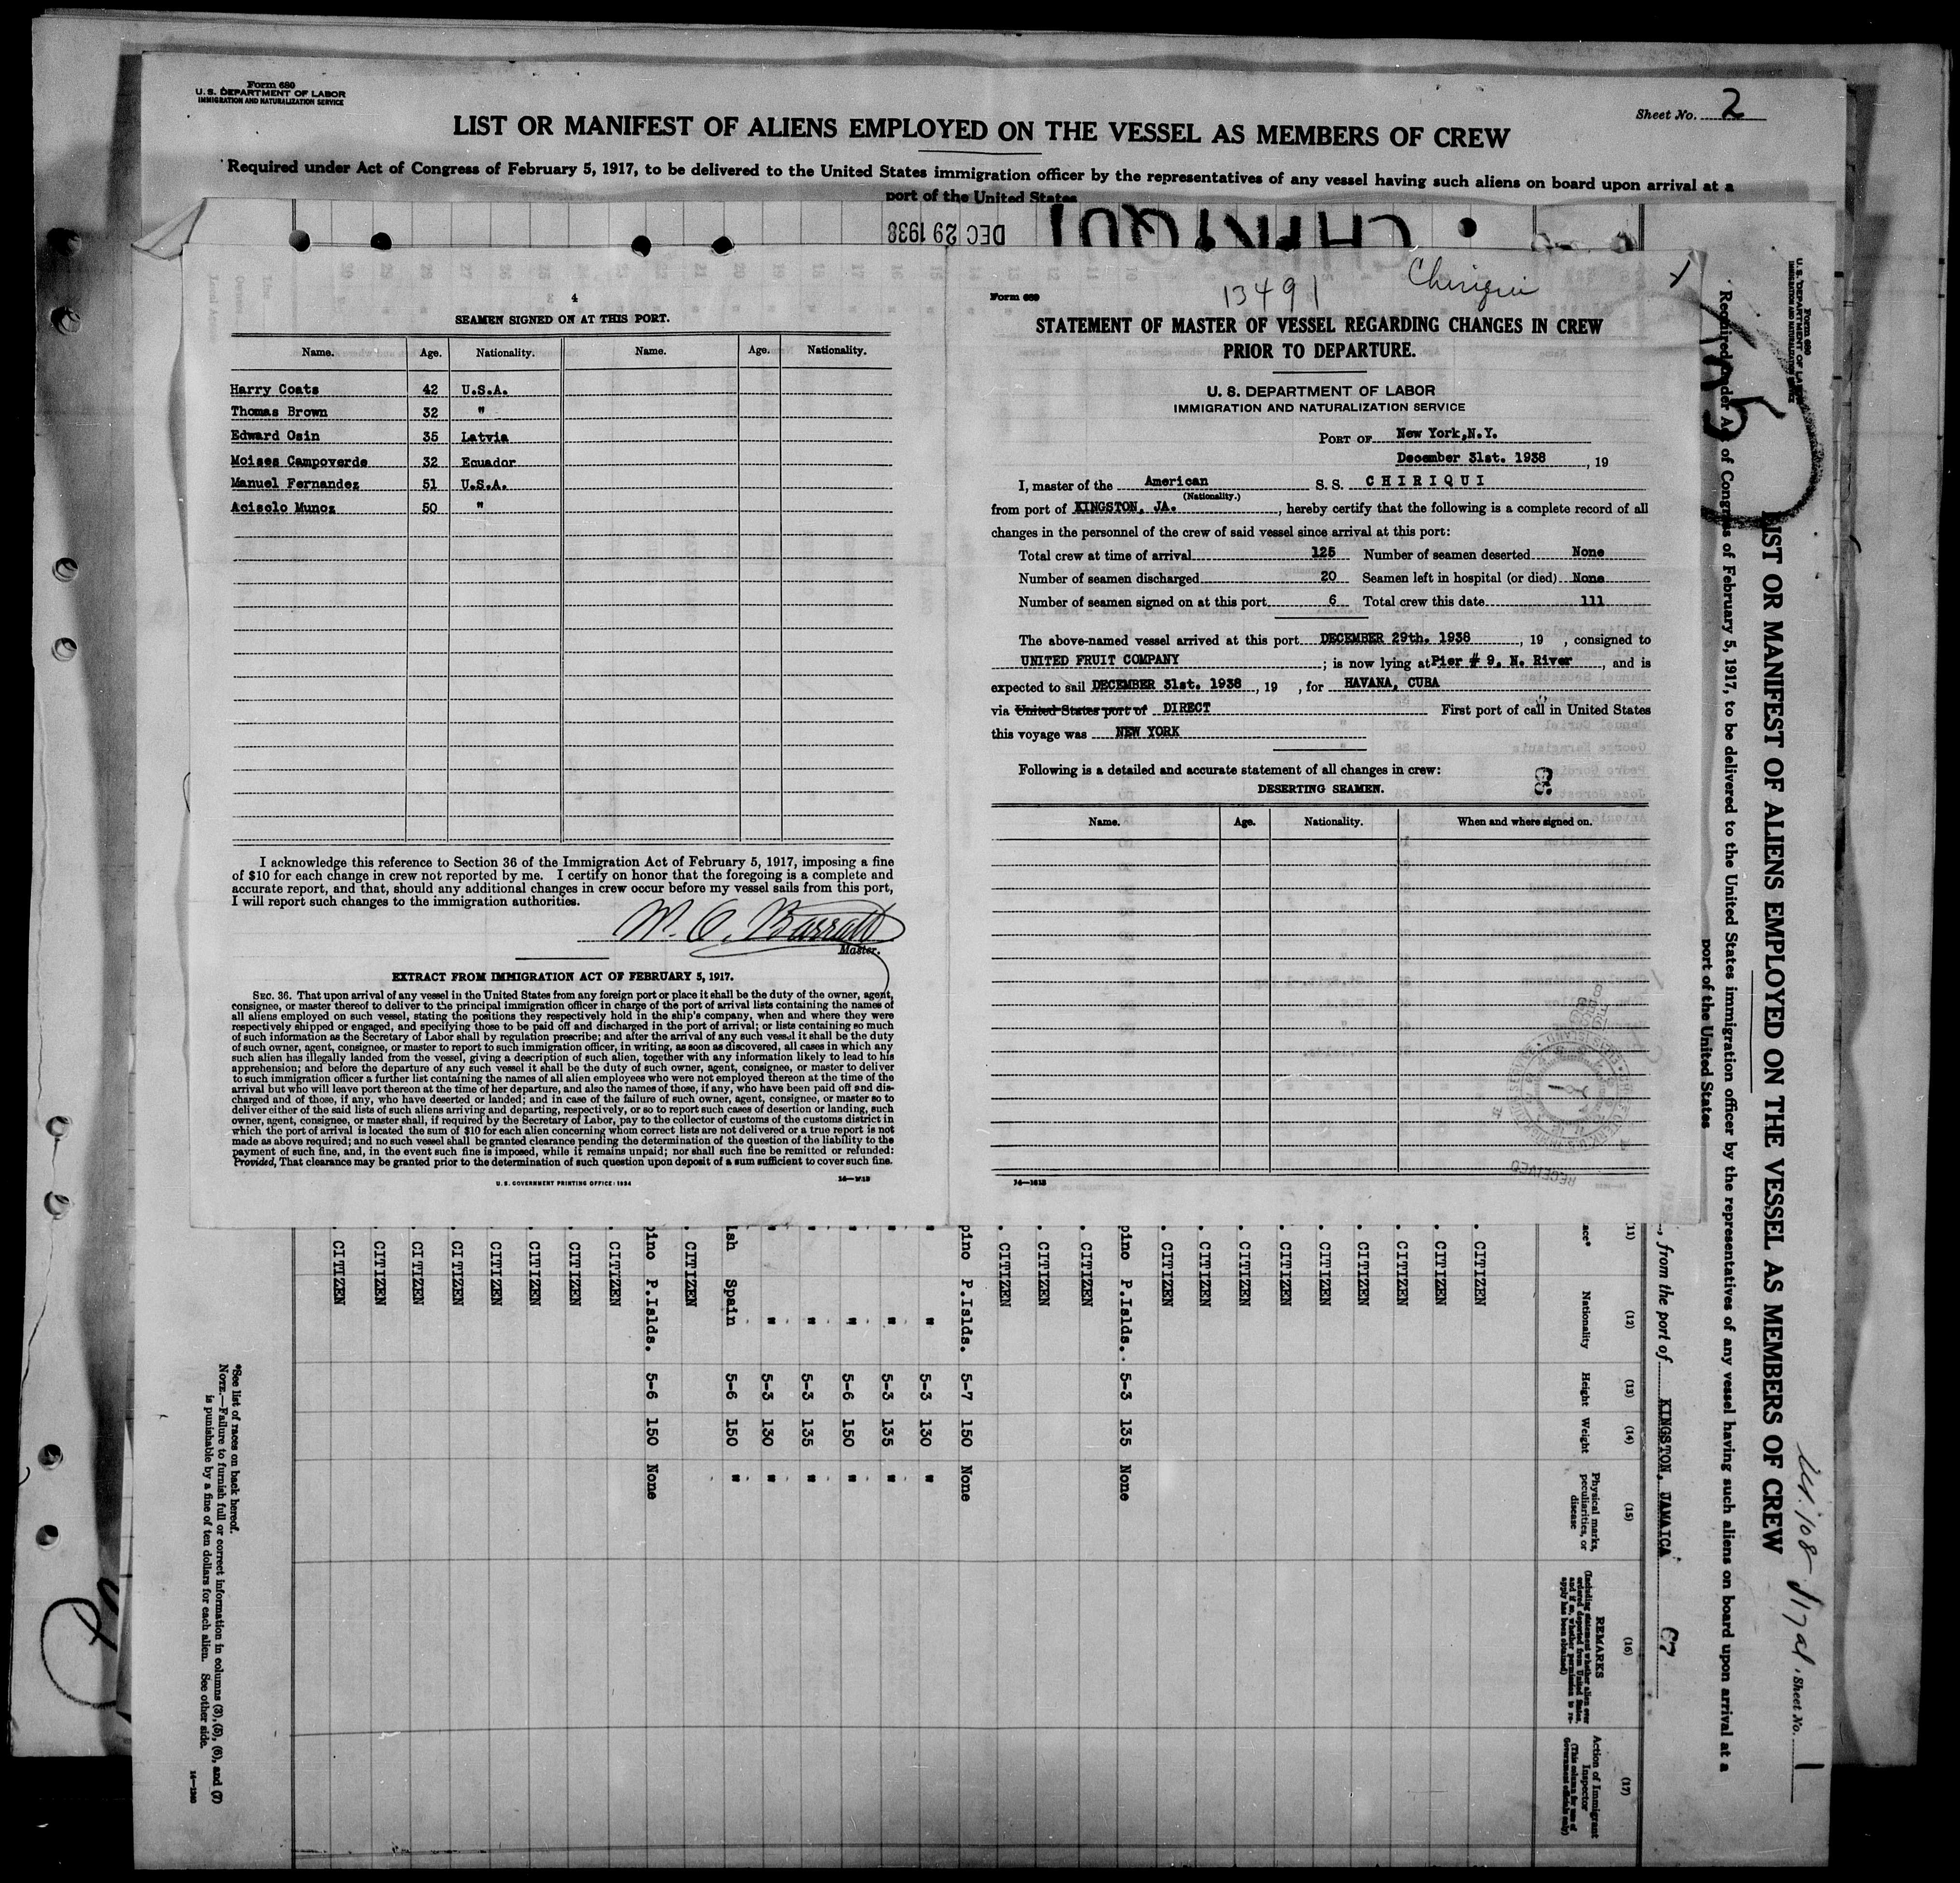 Form 680
U. S. DEPARTMENT OF LABOR
IMMIGRATION AND NATURALIZATION SERVICE
Sheet No. 2
LIST OR MANIFEST OF ALIENS EMPLOYED ON THE VESSEL AS MEMBERS OF CREW
Required under Act of Congress of February 5, 1917, to be delivered to the United States immigration officer by the representatives of any vessel having such aliens on board upon arrival at a
port of the United States
DEC 29 1938
CHIRIQUI
4
SEAMEN SIGNED ON AT THIS PORT.
Name. Age. Nationality. Name. Age. Nationality.
Harry Coats 42 U.S.A.
Thomas Brown 32 "
Edward Osin 35 Latvia
Moises Campoverde 32 Ecuador
Manuel Fernandez 51 U.S.A.
Acisclo Munoz 50 "
I acknowledge this reference to Section 36 of the Immigration Act of February 5, 1917, imposing a fine
of $10 for each change in crew not reported by me. I certify on honor that the foregoing is a complete and
accurate report, and that, should any additional changes in crew occur before my vessel sails from this port,
I will report such changes to the immigration authorities.
W. C. Barratt
Master.
EXTRACT FROM IMMIGRATION ACT OF FEBRUARY 5, 1917.
SEC. 36. That upon arrival of any vessel in the United States from any foreign port or place it shall be the duty of the owner, agent,
consignee, or master thereof to deliver to the principal immigration officer in charge of the port of arrival lists containing the names of
all aliens employed on such vessel, stating the positions they respectively hold in the ship's company, when and where they were
respectively shipped or engaged, and specifying those to be paid off and discharged in the port of arrival; or lists containing so much
of such information as the Secretary of Labor shall by regulation prescribe; and after the arrival of any such vessel it shall be the duty
of such owner, agent, consignee, or master to report to such immigration officer, in writing, as soon as discovered, all cases in which any
such alien has illegally landed from the vessel, giving a description of such alien, together with any information likely to lead to his
apprehension; and before the departure of any such vessel it shall be the duty of such owner, agent, consignee, or master to deliver
to such immigration officer a further list containing the names of all alien employees who were not employed thereon at the time of the
arrival but who will leave port thereon at the time of her departure, and also the names of those, if any, who have been paid off and dis-
charged and of those, if any, who have deserted or landed; and in case of the failure of such owner, agent, consignee, or master so to
deliver either of the said lists of such aliens arriving and departing, respectively, or so to report such cases of desertion or landing, such
owner, agent, consignee, or master shall, if required by the Secretary of Labor, pay to the collector of customs of the customs district in
which the port of arrival is located the sum of $10 for each alien concerning whom correct lists are not delivered or a true report is not
made as above required; and no such vessel shall be granted clearance pending the determination of the question of the liability to the
payment of such fine, and, in the event such fine is imposed, while it remains unpaid; nor shall such fine be remitted or refunded:
Provided, That clearance may be granted prior to the determination of such question upon deposit of a sum sufficient to cover such fine.
U. S. GOVERNMENT PRINTING OFFICE: 1934
Form 689
13491
Chiriqui
STATEMENT OF MASTER OF VESSEL REGARDING CHANGES IN CREW
PRIOR TO DEPARTURE.
U. S. DEPARTMENT OF LABOR
IMMIGRATION AND NATURALIZATION SERVICE
PORT OF New York,N.Y.
December 31st. 1938, 19
I, master of the American S. S. CHIRIQUI
(Nationality.)
from port of KINGSTON, JA., hereby certify that the following is a complete record of all
changes in the personnel of the crew of said vessel since arrival at this port:
Total crew at time of arrival 125 Number of seamen deserted None
Number of seamen discharged 20 Seamen left in hospital (or died) None
Number of seamen signed on at this port 6 Total crew this date 111
The above-named vessel arrived at this port DECEMBER 29th. 1938, 19 , consigned to
UNITED FRUIT COMPANY ; is now lying at Pier # 9, N. River, and is
expected to sail DECEMBER 31st. 1938, 19 , for HAVANA, CUBA
via United States port of DIRECT First port of call in United States
this voyage was NEW YORK
Following is a detailed and accurate statement of all changes in crew:
DESERTING SEAMEN.
Name. Age. Nationality. When and where signed on.
14—1613
Form 680
U. S. DEPARTMENT OF LABOR
IMMIGRATION AND NATURALIZATION SERVICE
LIST OR MANIFEST OF ALIENS EMPLOYED ON THE VESSEL AS MEMBERS OF CREW
Sheet No. 1
Required under Act of Congress of February 5, 1917, to be delivered to the United States immigration officer by the representatives of any vessel having such aliens on board upon arrival at a
port of the United States
, from the port of KINGSTON, JAMAICA
(11) (12) (13) (14) (15) (16) (17)
Nationality Height Weight Physical marks, peculiarities, or disease REMARKS (Including statement whether alien ever ordered deported from United States, and if so, whether permission to re-apply has been obtained) Action of Immigrant Inspector (This column for use of Government officials only)
CITIZEN
CITIZEN
CITIZEN
CITIZEN
CITIZEN
CITIZEN
CITIZEN
CITIZEN
CITIZEN
pino P.Islds. 5-3 135 None
CITIZEN
CITIZEN
CITIZEN
pino P.Islds. 5-7 150 None
" " 5-3 130 "
" " 5-3 135 "
" " 5-6 150 "
" " 5-3 135 "
" " 5-3 130 "
ish Spain 5-6 150 "
CITIZEN
pino P.Islds. 5-6 150 None
CITIZEN
CITIZEN
CITIZEN
CITIZEN
CITIZEN
CITIZEN
CITIZEN
CITIZEN
*See list of races on back hereof.
NOTE.—Failure to furnish full or correct information in columns (3), (5), (6), and (7)
is punishable by a fine of ten dollars for each alien. See other side.